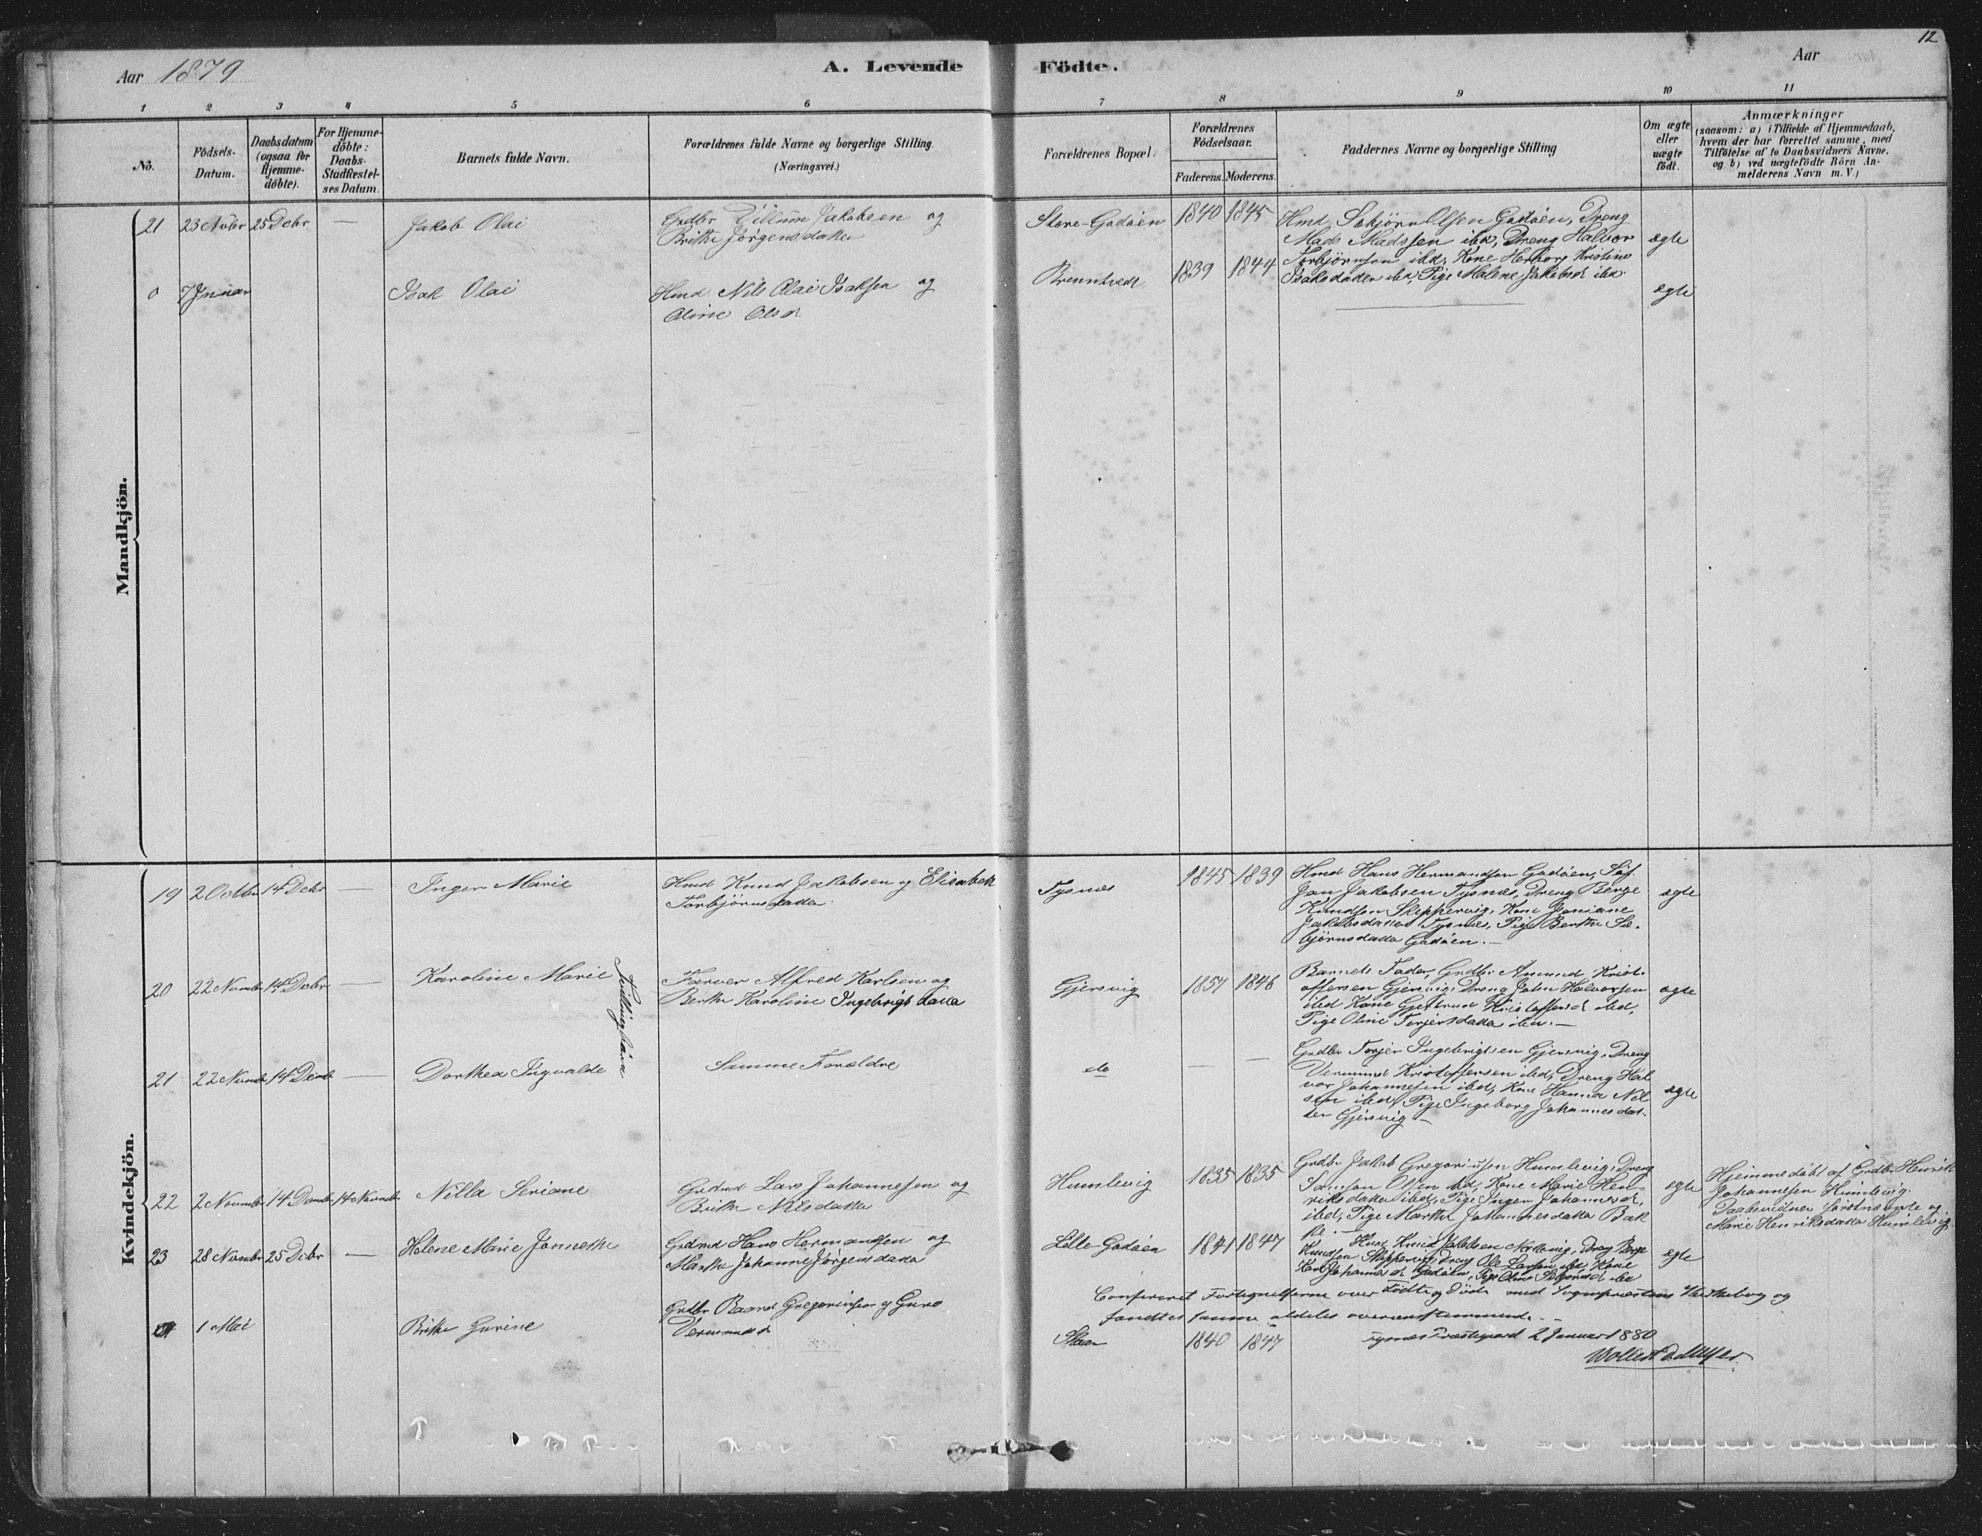 12
Aar 1879
A. Levende
Födte.
Aar
1 2 3 4 5 6 7 8 9 10 11
No.
Födsels-
Datum.
Daabsdatum
(ogsaa for
Hjemme-
døbte).
For Hjemme-
døbte:
Daabs-
Stadfæstel-
ses Datum.
Barnets fulde Navn.
Forældrenes fulde Navne og borgerlige Stilling.
(Næringsvei.)
Forældrenes Bopæl.
Forældrenes
Födselsaar.
Faderens. Moderens.
Faddernes Navne og borgerlige Stilling
Om ægte
eller
uægte
födt.
Anmærkninger
(saasom: a) i Tilfælde af Hjemmedaab,
hvem der har forrettet samme, med
Tilføielse af to Daabsvidners Navne.
og b) ved uægtefödte Börn An-
melderens Navn m. V.)
Mandkjön.
21 23 Nobr 25 Debr — Jakob Olai
Grdbr Jakobsen og
Brithe Jørgensdatter
Store-Godøen 1840 1845
Hmd Olsen Godøen, Dreng
Mads Madssen ibd, Dreng Halvor
Torbjørnsen ibd, Kone Herborg Kristine
Isaksdatter ibd, Pige Malene Jakobsd ibd.
ægte
0 7 Januar Isak Olai
Hmd Nils Olai Isaksen og
Oline Olsd
1839 1844
ægte
Kvindekjön.
19 14 Debr — Inger Marie
Hmd Knud Jakobsen og Elisabet
Torbjørnsdatter.
Tysnes 1845 1839
Hmd Hans Hermandsen Godøen,
Jan Jakobsen Tysnes, Dreng Berge
Knudsen Skippervig, Kone
Jakobsdatter Tysnes, Pige Berthe Se-
bjørnsdatter Godøen.—
ægte
20 22 Novmbr 14 Debr — Karoline Marie
Tvillingsøstre
Farver Alfred Karlsen og
Berthe Karoline Ingebrigtsdatter
Gjersvig 1857 1846
Barnets Fader, Grdbr Amund Krist-
offersen Gjersvig, Dreng John Halvorsen
ibd Kone Gjertrud Kristoffersd ibd,
Pige Oline Torjersdatter ibd.—
ægte
21 22 Novmbr 14 Decbr — Dorthea Ingvalde
Samme Forældre
do — —
Grdbr Torjer Ingebrigtsen Gjersvig, Dreng
Vermund Kristoffersen ibd, Dreng Hal-
vor Johannesen ibd, Kone Hanna Nil-
sen ibd, Pige Ingeborg Johannesdat-
ter Gjersvig—
ægte
22 2 Novmbr 14 Decmbr 14 Novmbr Nilla Seriane
Grdmd Lars Johannesen og
Brithe Nilsdatter
Humlevig 1835 1835
Grdbr Jakob Gregoriussen Humlevig, Dreng
Samson Olsen ibd, Kone Marie Hen-
riksdatter ibd, Pige Inger Johannesd,
ibd, Pige Marthe Johannesdatter Bak-
ke.—
ægte
Hjemmedøbt af Grdbr Henrik
Johannesen Humlevig.
Daabsvidner førstnævnte og
Marie Henriksdatter Humlevig
23 28 Novmbr 25 Debr — Helene Marie Jannette
Grdmd Hans Hermandsen og
Marthe Johanne Jørgensdatter
Lille-Godøen 1841 1847
Hmd Knud Jakobsen, Dreng Berge
Knudsen Skippervig, Dreng Ole Larsen ibd, Kone
Johannesd Godøen, Pige ibd
ægte
Confereret Fortegnelserne over Fødte og Døde med Sognepræstens og
fandtes samme aldeles overensstemmende.—
Tysnes Præstegaard 2 Januar 1880
0 1 Mai Brithe Gurine
Grdbr Baard Gregoriussen og Guro
Vermundsd
1840 1847